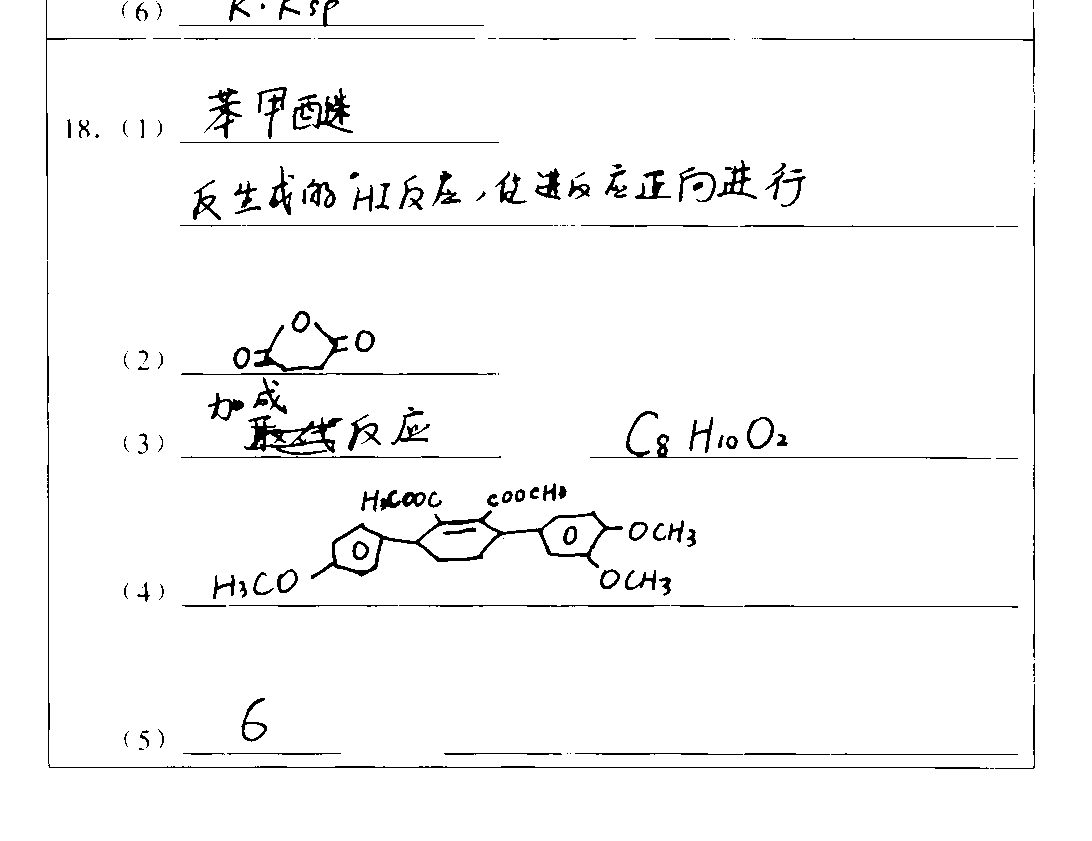 (6) K·Ksp
18. (1) 苯甲醚
反生成的HI反应,促进反应正向进行
O
(2) O O
加成
(3) 反应 C8H10O2
H3COOC COOCH3
OCH3
(4) H3CO OCH3
(5) 6